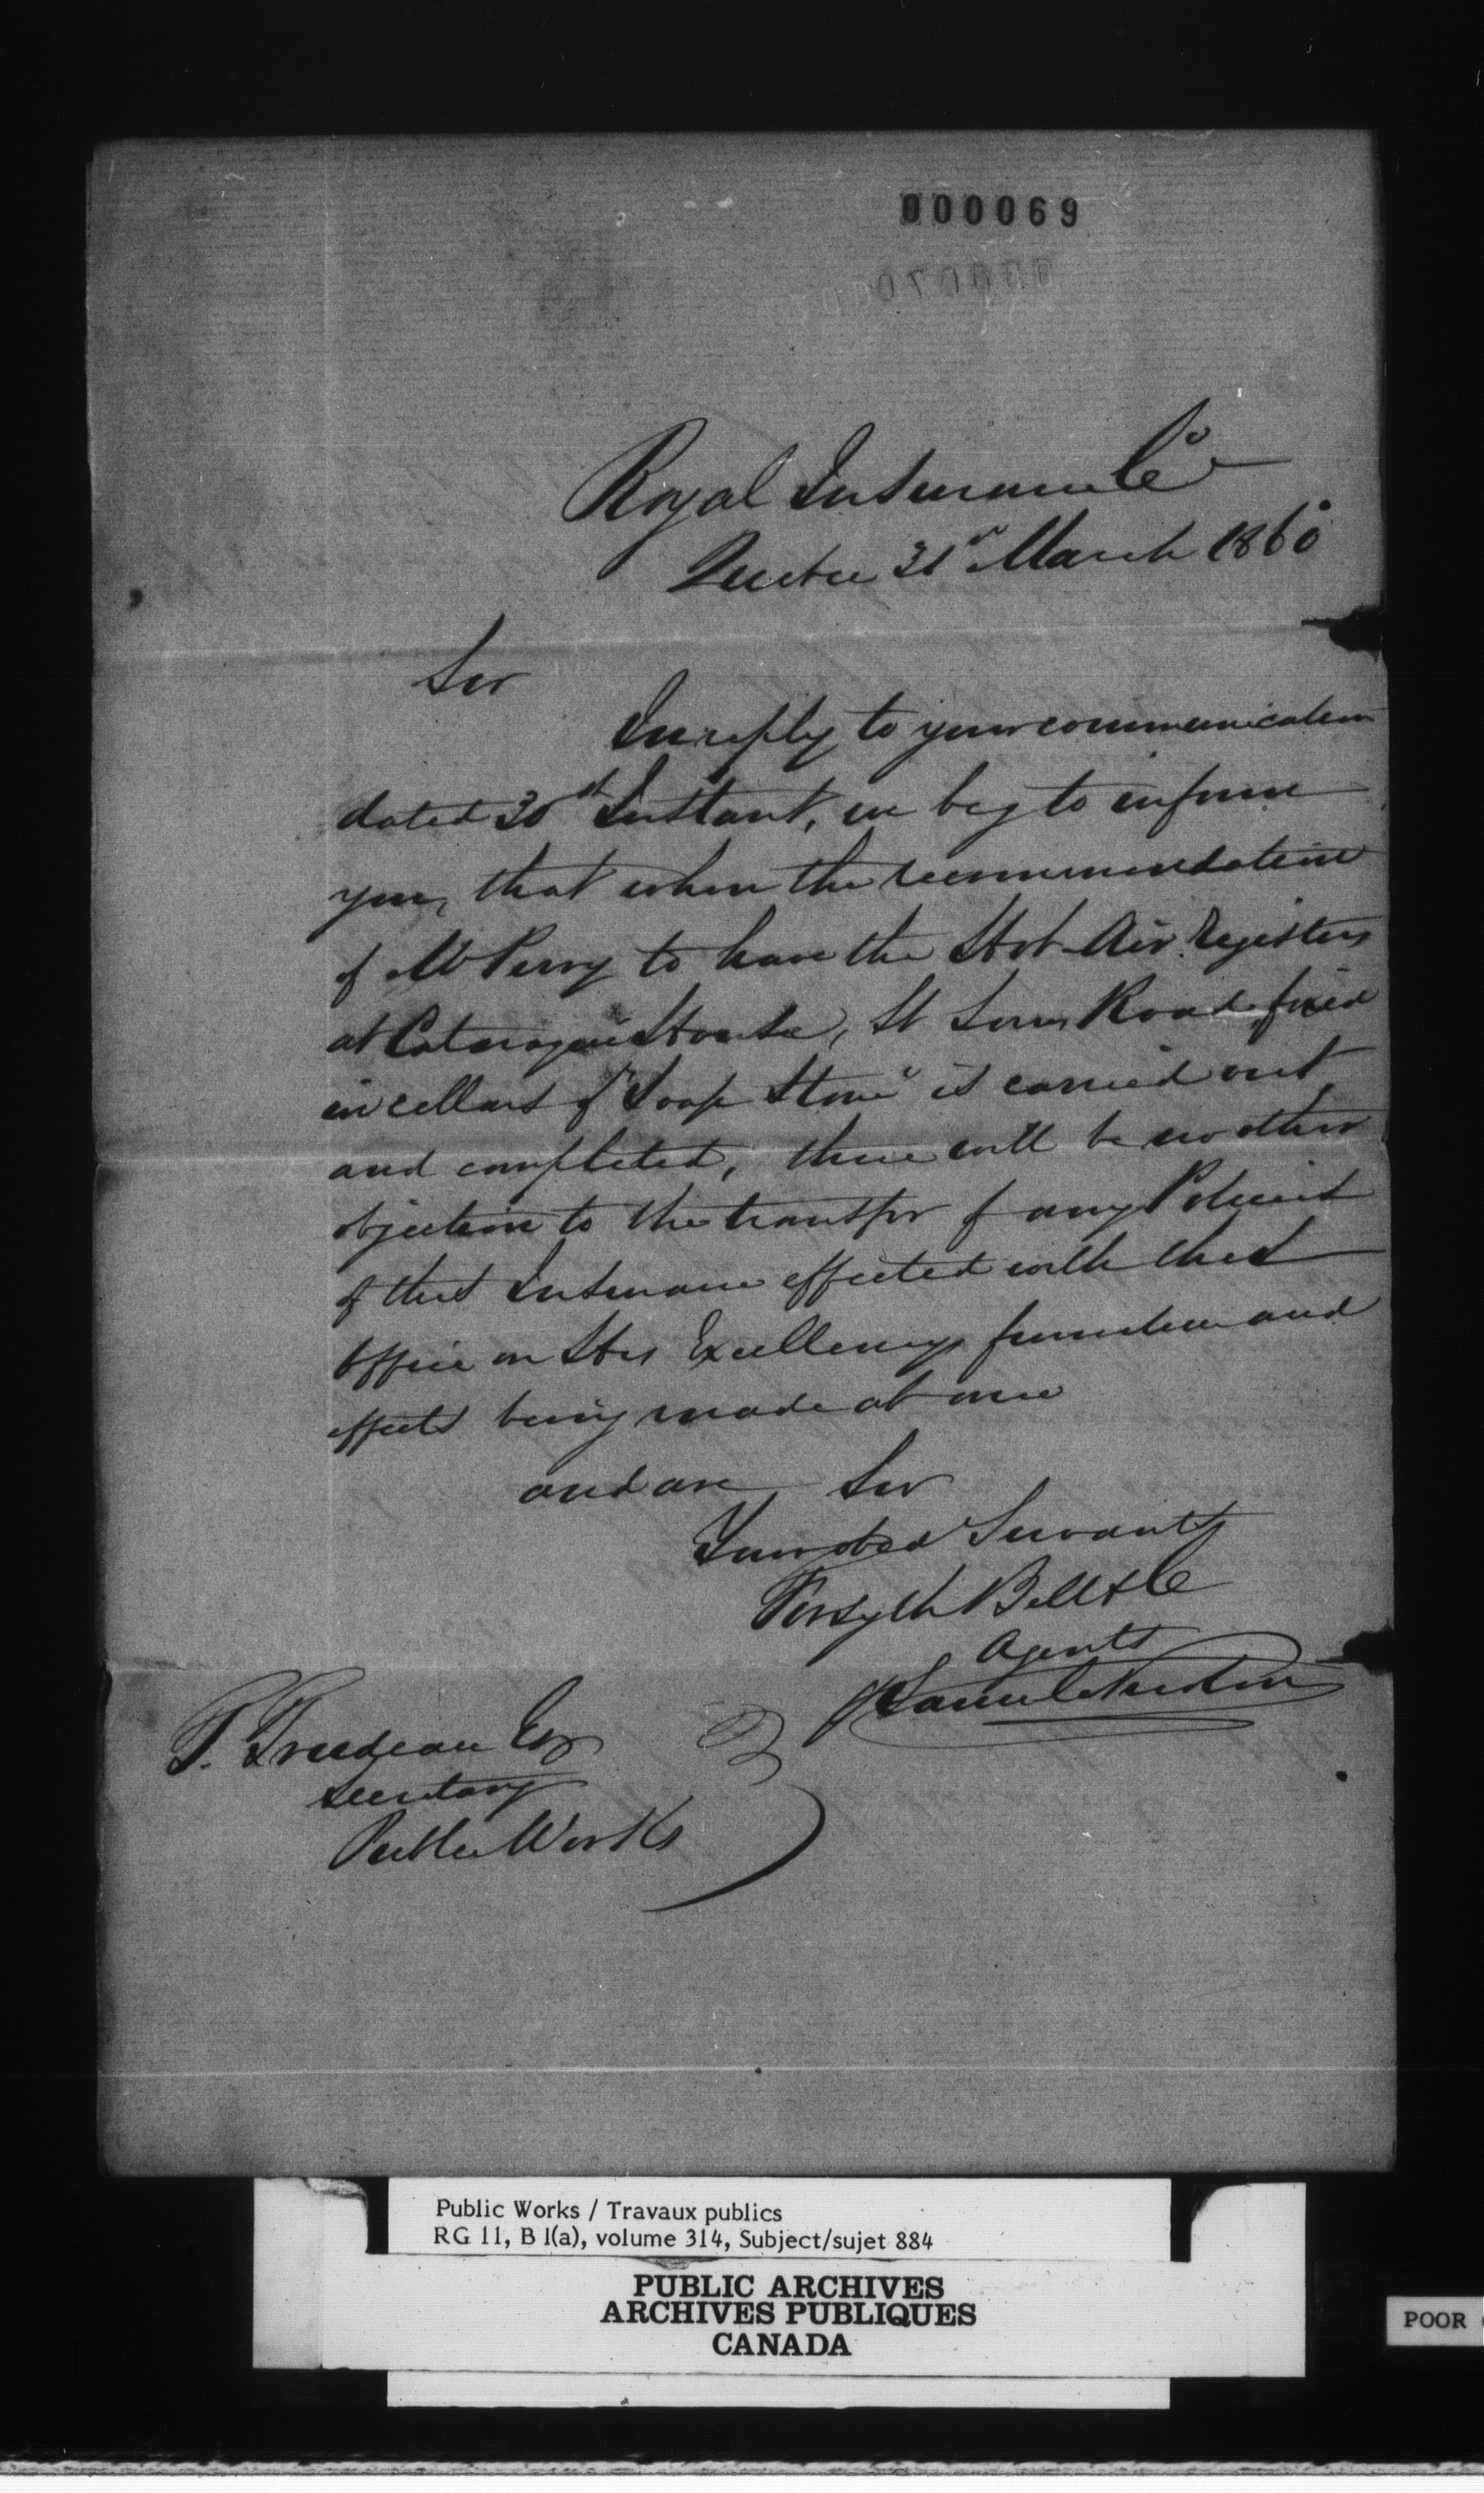 000069
Royal Insurance Co
Quebec 31st March 1860
Sir
In reply to your communication
dated 30th Instant, we beg to inform
you, that when the recommendation
of Mr Perry to have the Hot Air Registers
at Cataraqui House, St Louis Road fixed
in cellars of "Soap Stone" is carried out
and completed, there will be no other
objection to the transfer of any Policies
of this Insurance effected with this
Office on His Excellencys furniture and
effects being made at once
and are Sir
Your obed Servants
Forsyth Bell & Co
Agents
T. Trudeau Esq
Secretary
Public Works
Public Works / Travaux publics
RG 11, B 1(a), volume 314, Subject/sujet 884
PUBLIC ARCHIVES
ARCHIVES PUBLIQUES
CANADA
POOR